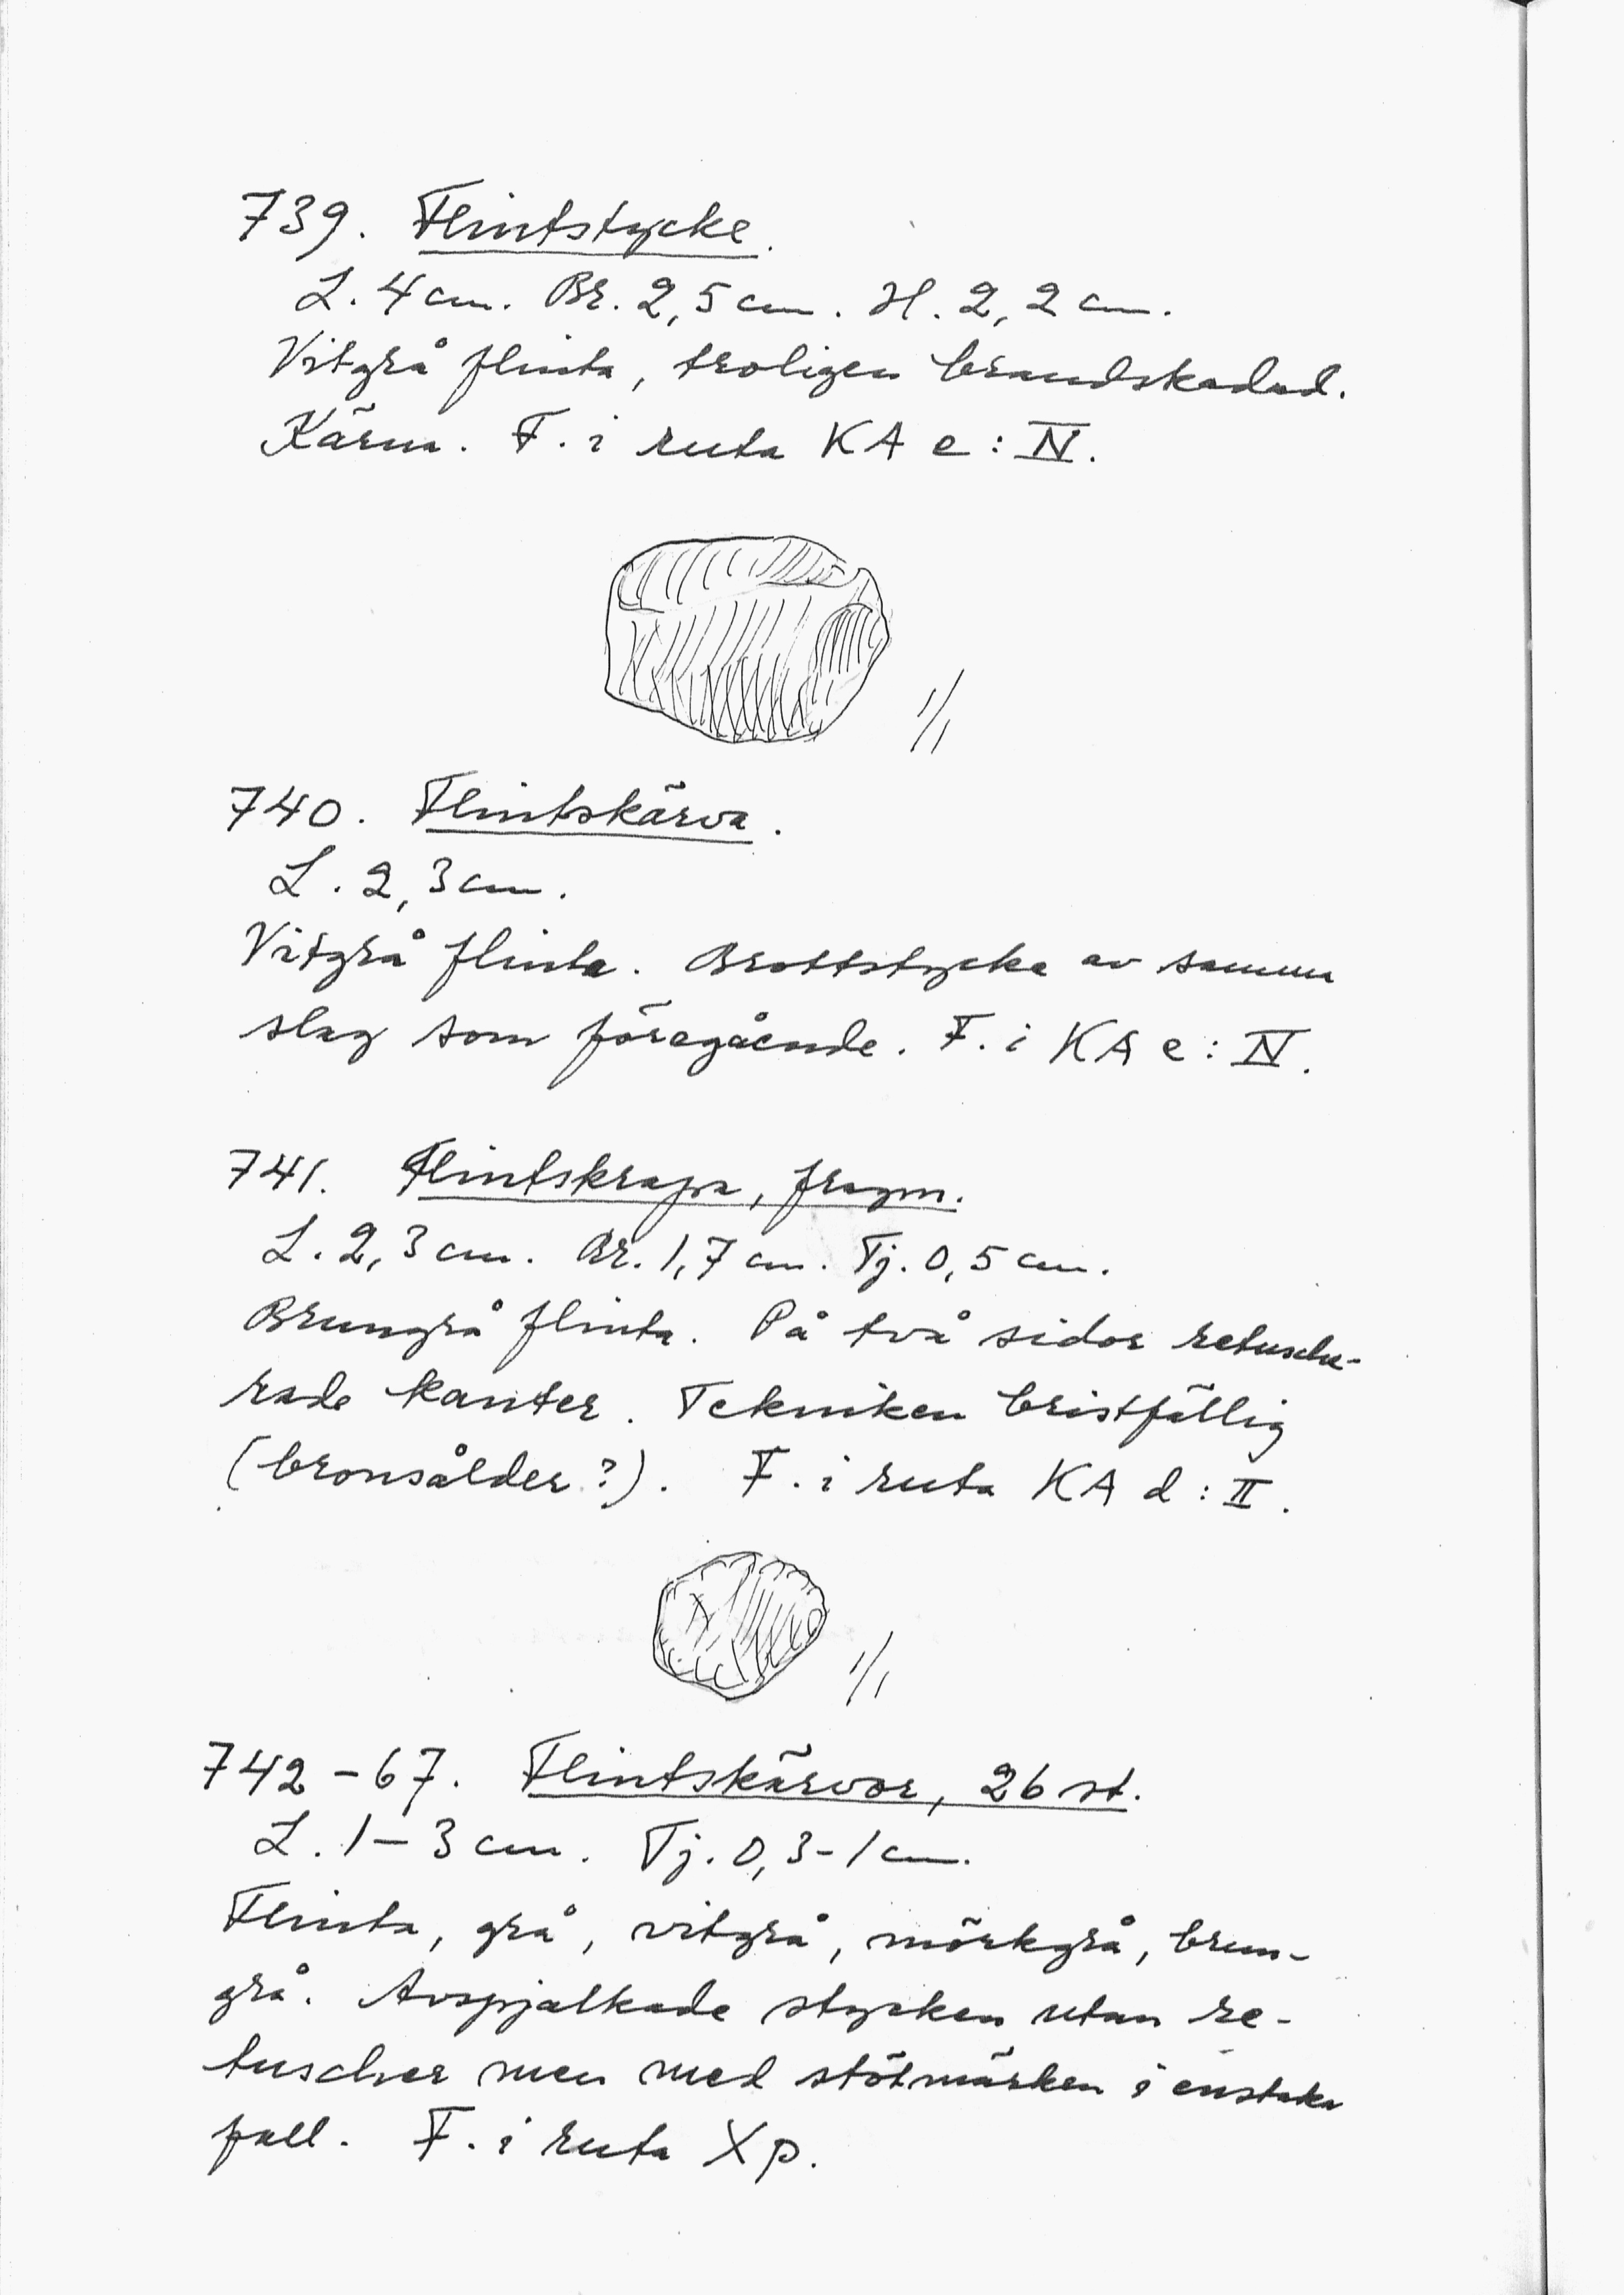 739. Flintstycke.
L. 4 cm. Br. 2,5 cm. H. 2,2 cm.
Vitgrå flinta, troligen brandskadad.
Kärna. F. i ruta KA e : IV.
1/1
740. Flintskärva.
L. 2,3 cm.
Vitgrå flinta. Brottstycke av samma
slag som föregående. F. i KA e : IV.
741. Flintskrapa, fragm.
L. 2,3 cm. Br. 1,7 cm. Tj. 0,5 cm.
Brungrå flinta. På två sidor retusche-
rade kanter. Tekniken bristfällig
(bronsålder?). F. i ruta KA d : II.
1/1
742-67. Flintskärvor, 26 st.
L. 1-3 cm. Tj. 0,3-1 cm.
Flinta, grå, vitgrå, mörkgrå, brun-
grå. Avspjälkade stycken utan re-
tuscher men med stötmärken i enstaka
fall. F. i ruta X p.